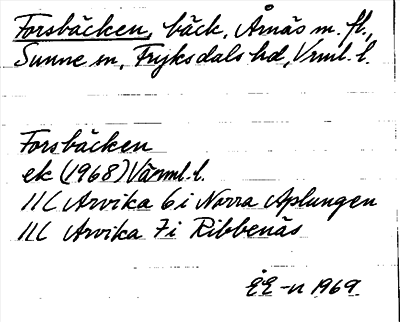 Forsbäcken, bäck, Årnäs m. fl.,
Sunne sn, Fryksdals hd, Vrml. l.
Forsbäcken
ek (1968) Värml. l.
11C Arvika 6i Norra Aplungen
11C Arvika 7i Ribbenäs
EE-n 1969.